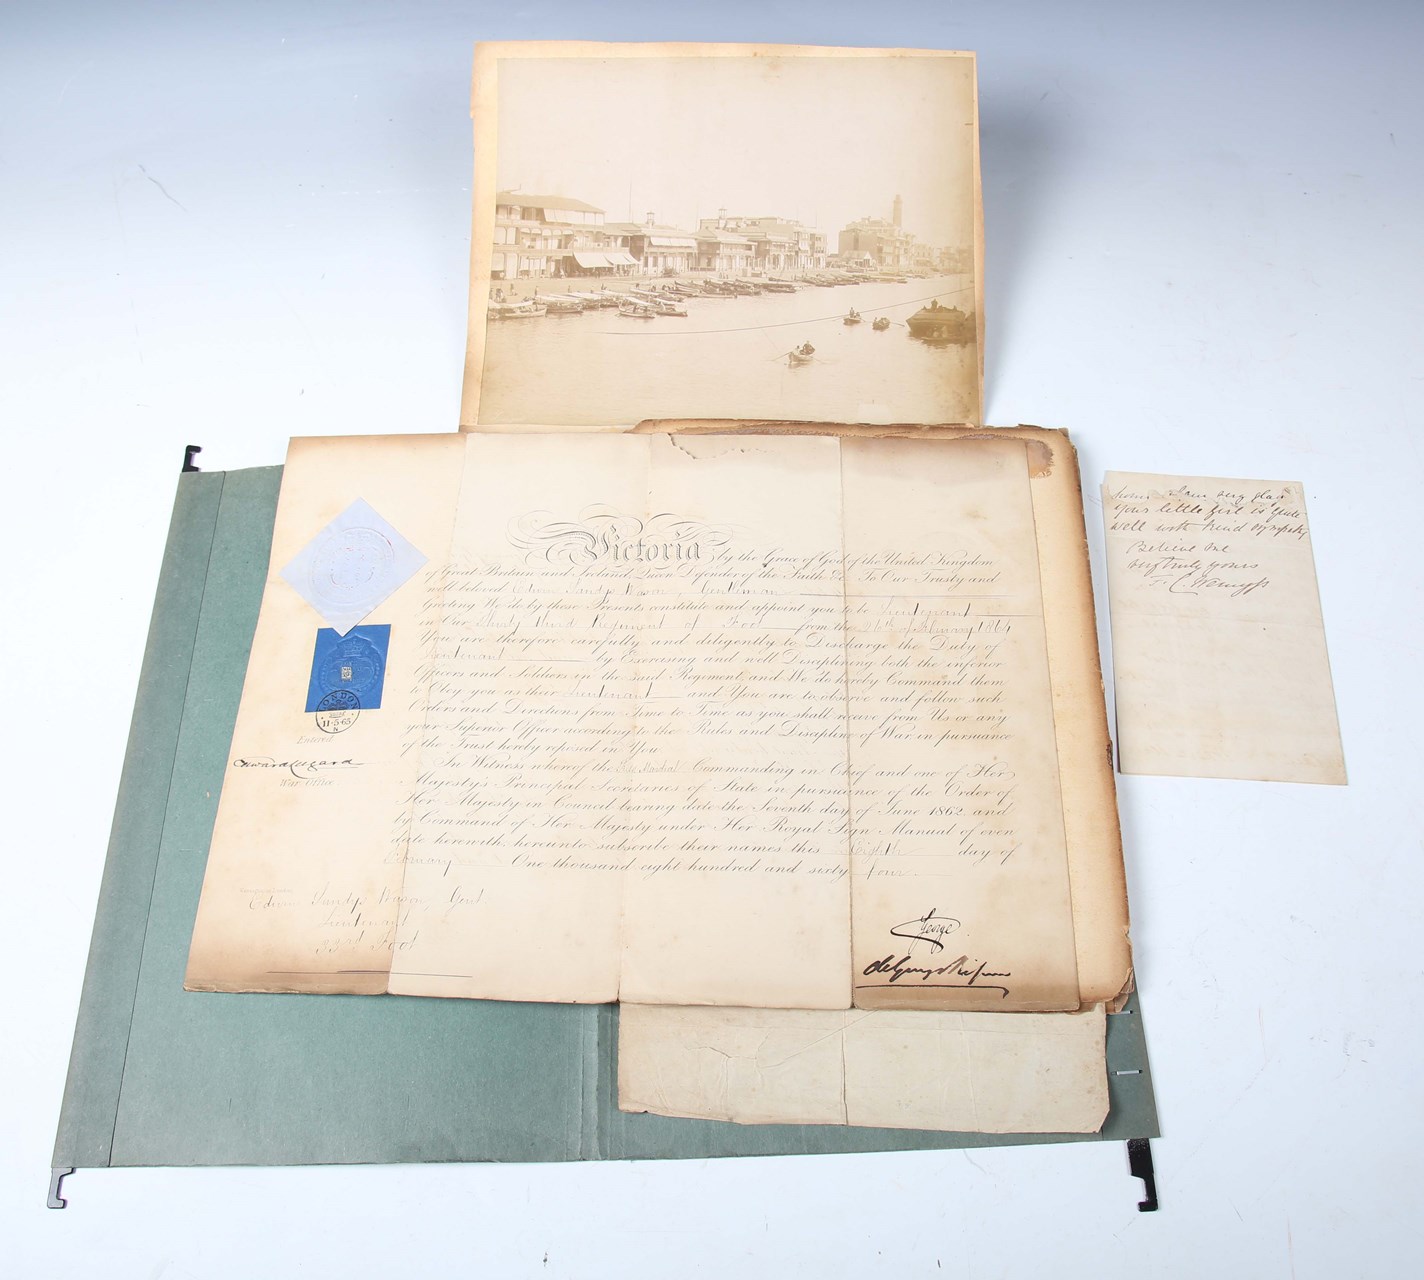 Victoria by the Grace of God of the United Kingdom
of Great Britain and Ireland, Queen, Defender of the Faith &c. To Our Trusty and
well beloved Edwin Sandys Wason, Gentleman
Greeting We do by these Presents constitute and appoint you to be Lieutenant
in Our Thirty third Regiment of Foot from the 26th of February 1864
You are therefore carefully and diligently to Discharge the Duty of
Lieutenant by Exercising and well Disciplining both the inferior
Officers and Soldiers in the said Regiment, and We do hereby Command them
to Obey you as their Lieutenant and You are to observe and follow such
Orders and Directions from Time to Time as you shall receive from Us or any
your Superior Officer according to the Rules and Discipline of War in pursuance
of the Trust hereby reposed in You
In Witness whereof the Field Marshal Commanding in Chief and one of Her
Majesty's Principal Secretaries of State in pursuance of the Order of
Her Majesty in Council bearing date the Seventh day of June 1862, and
by Command of Her Majesty under Her Royal Sign Manual of even
date herewith, hereunto subscribe their names this Eighth day of
February One thousand eight hundred and sixty four
LONDON
11·5·65
Entered
Edward Lugard
War Office
Edwin Sandys Wason, Gent
Lieutenant
33rd Foot
George
de Grey & Ripon
home. I am very glad
your little girl is quite
well with kind sympathy
Believe me
very truly yours